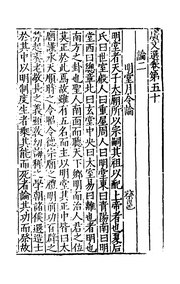 廣文選卷第五十
論一
明堂月令論
蔡邕
明堂者天子太廟所以宗祀其祖以配上帝者也夏后
氏曰世室殷人曰重屋周人曰明堂東曰青陽南曰明
堂西曰總章北曰玄堂中央曰太室易曰離也者明也
南方之卦也聖人南面而聽天下鄉明而治人君之位
莫正於此焉故雖有五名而主以明堂其正中皆曰太
廟謹承天順時之令昭令德宗祀之禮明前功百辟之
勞起養老敬長之義顯教幼誨稚之學朝諸侯選造士
於其中以明制度生者乘其能而至死者論其功而祭故